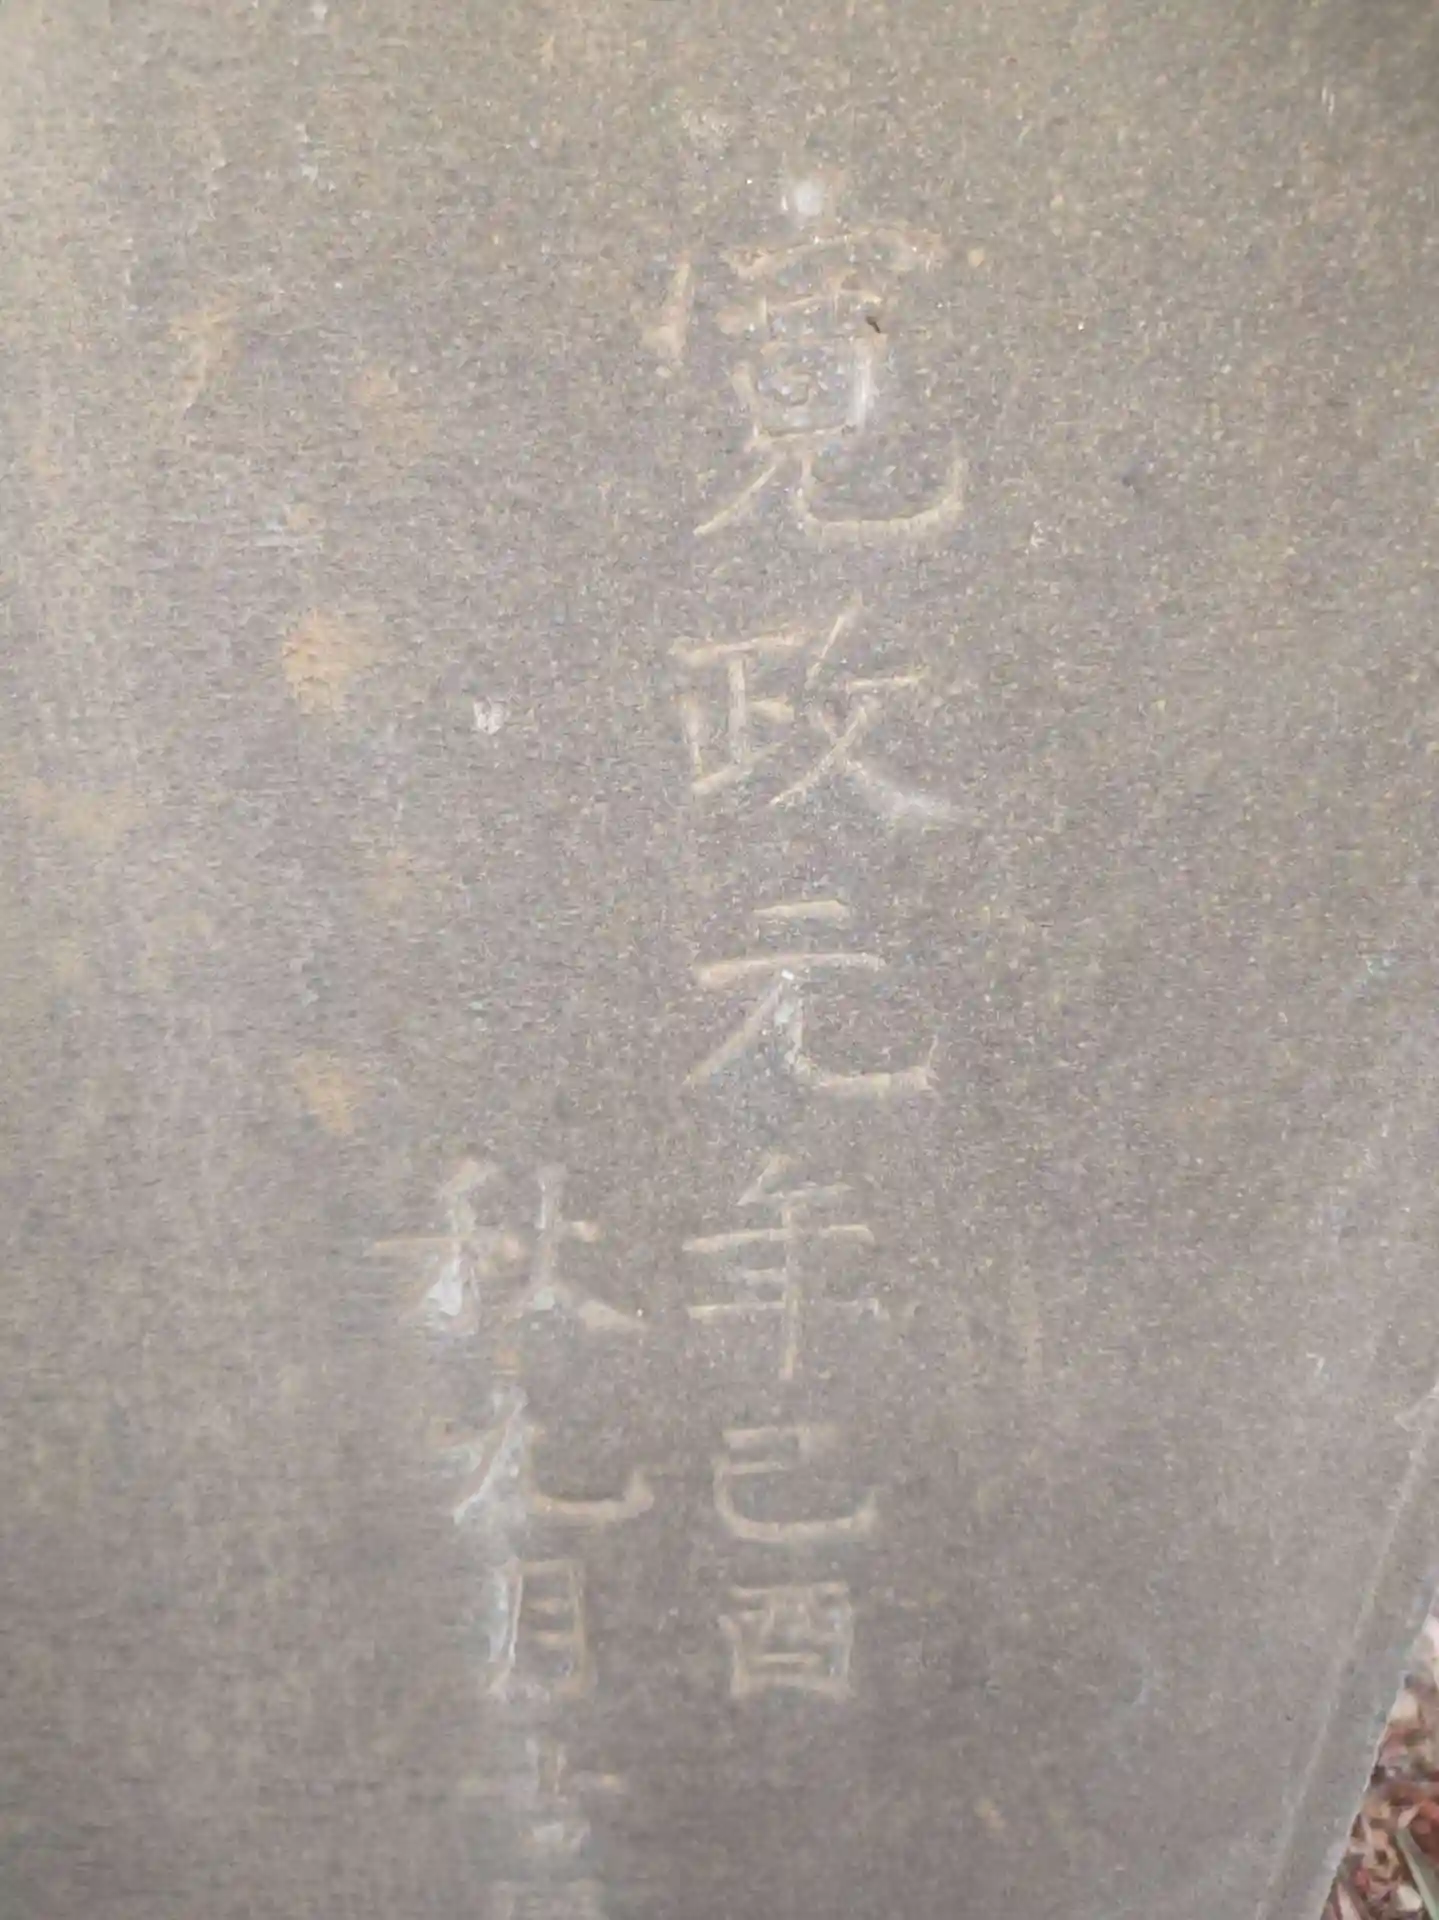 寛政元年己酉
秋九月十